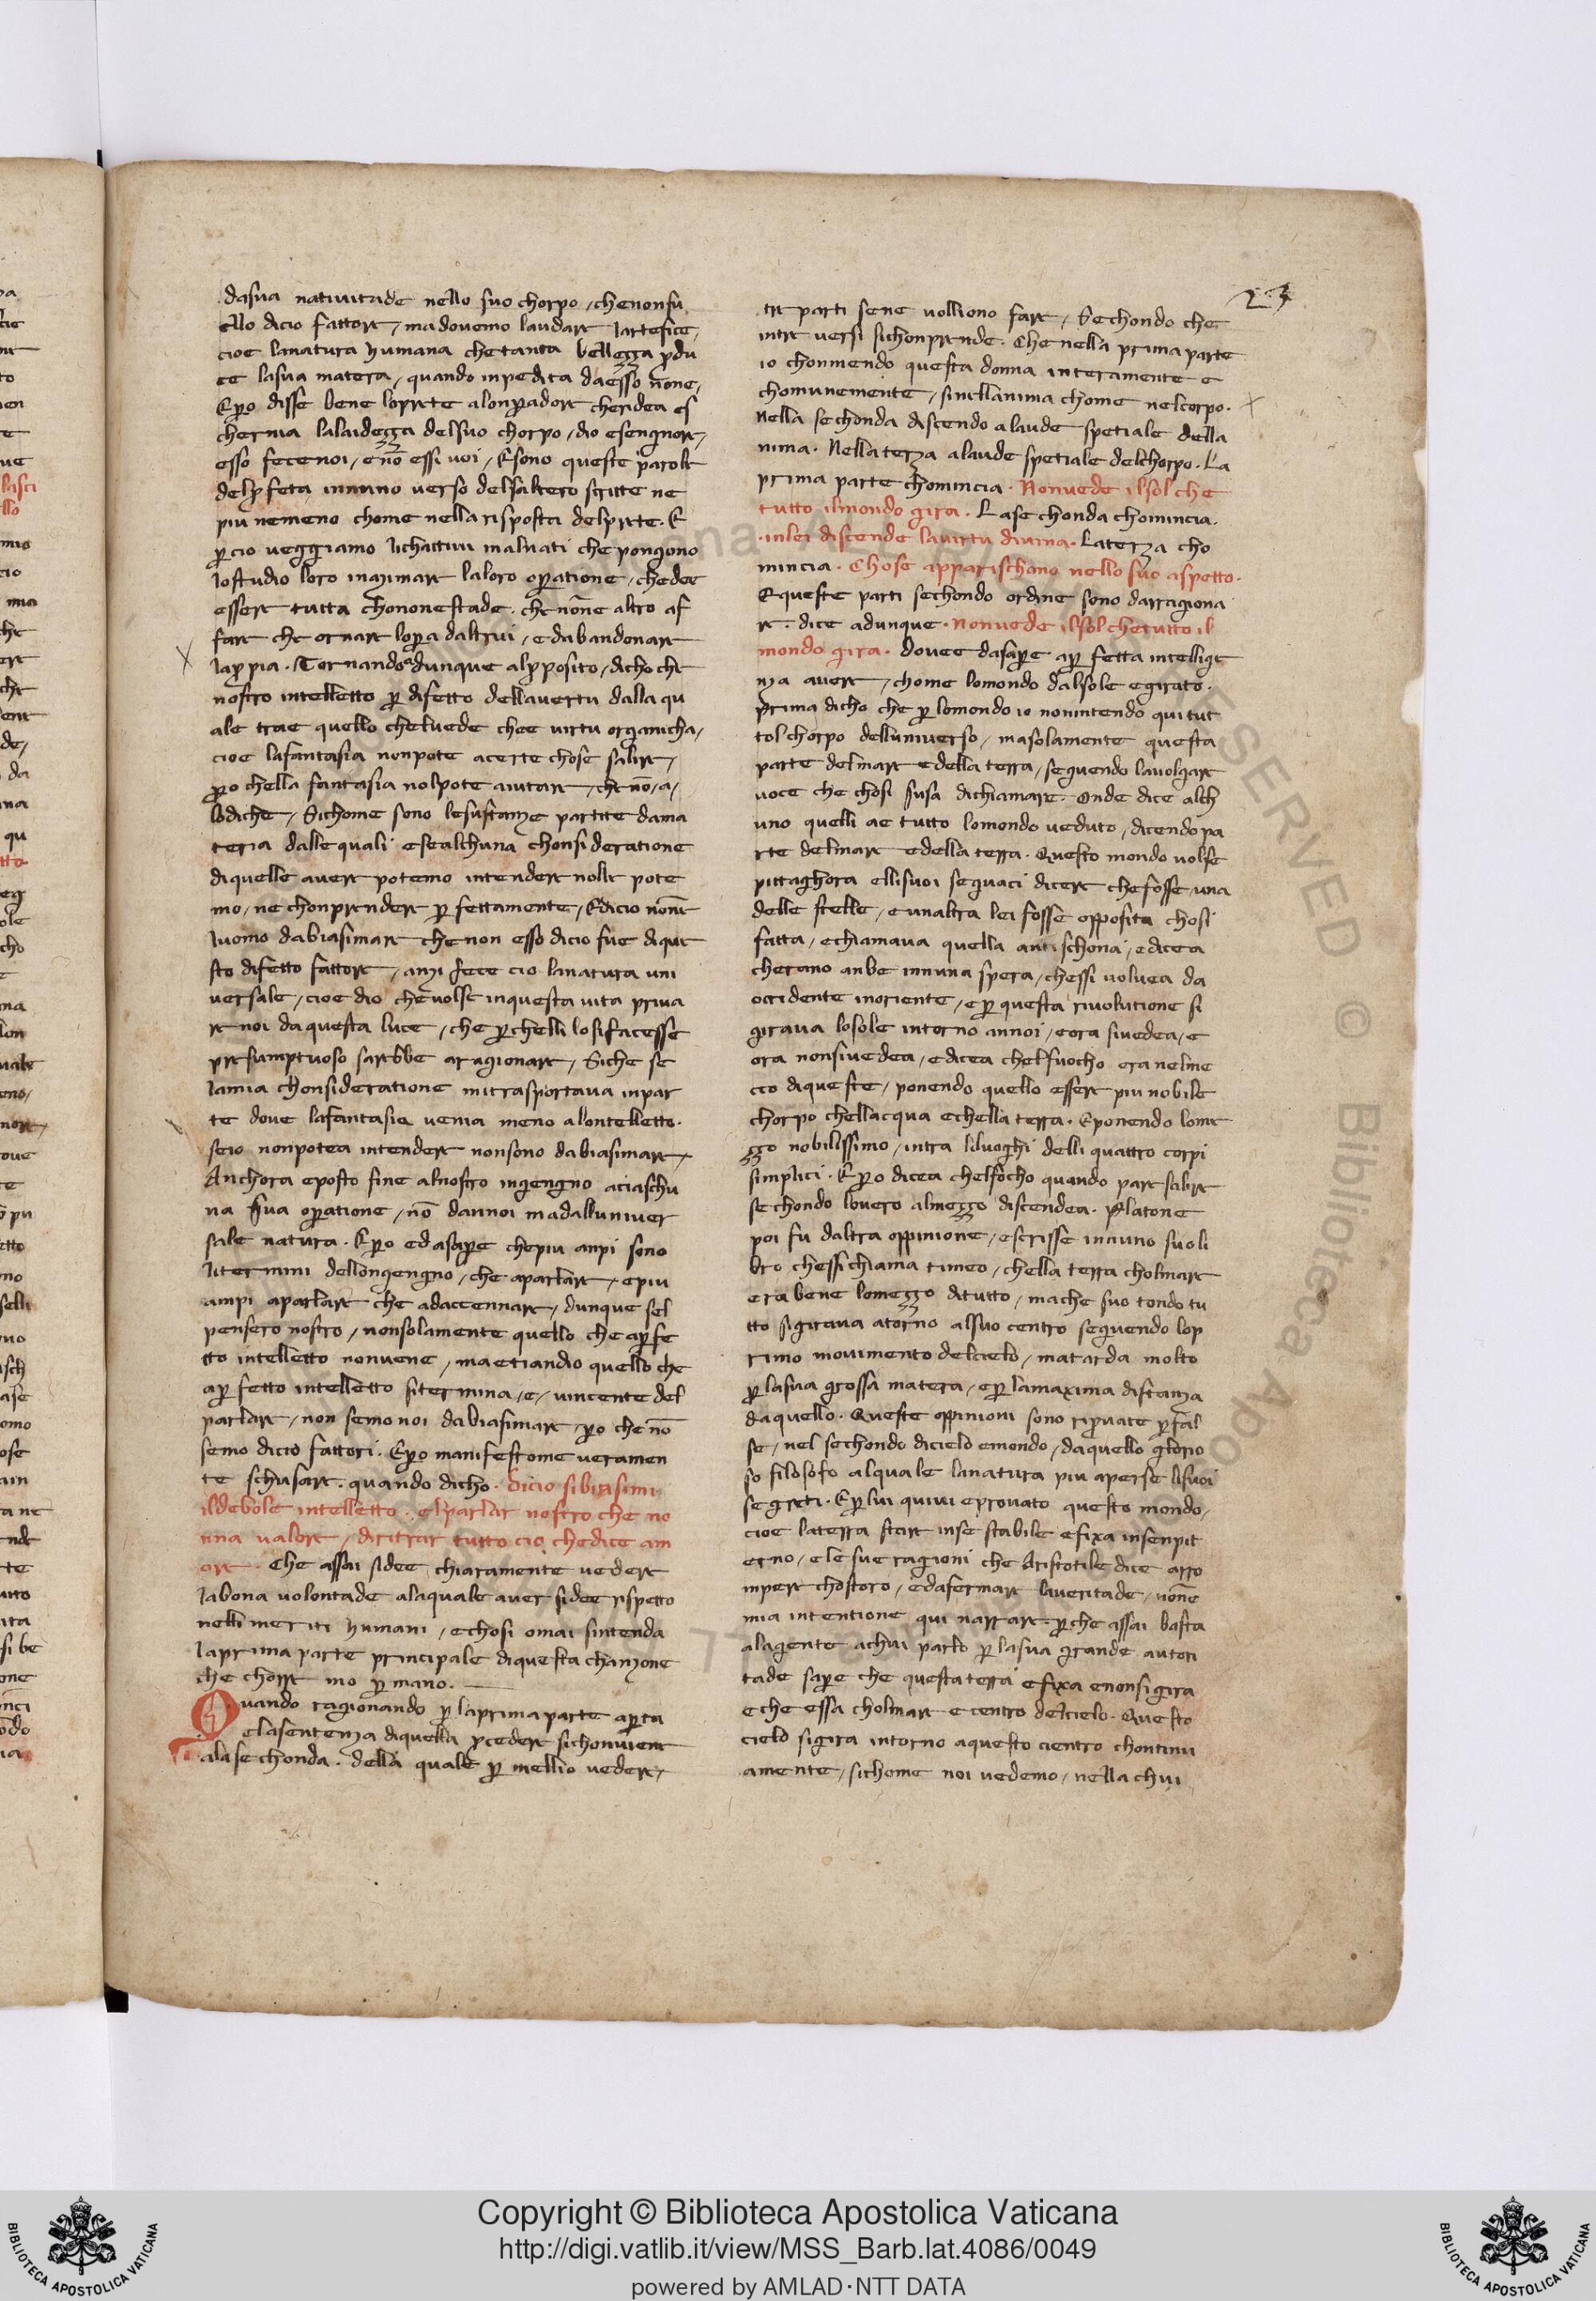 23
dasua natiuitade nello suo chorpo / chenonfu
ello dicio fattore / madouemo laudare lartefice /
cioe lanatura humana chetanta bellezza ꝓdu
ce lasua matera / quando inpedita daesso none /
Eꝑo disse bene loprete alonꝑadore cheridea es
chernia lalaidezza delsuo chorpo / dio esengnore /
esso fecenoi / enō essi uoi / Esono queste parole
delꝓfeta innuno verso delsaltero scritte ne
piu nemeno chome nella risposta delprete. E
ꝑcio ueggiamo lichattiui maluati che pongono
lostudio loro inazimare laloro oꝑatione / chedee
essere tutta chononestade. che nōne altro af
fare che ornare loꝑa daltrui / edabandonare
laꝓpia. Tornando adunque alꝓposito / dicho che
nostro intelletto ꝑ difetto dellauertu dalla qu
ale trae quello cheluede chee uirtu organicha /
cioe lafantasia nonpote acerte chose salire /
ꝑo chella fantasia nolpote aiutare / che nō / a /
lodiche / Sichome sono lesustanze partite dama
teria dallequali esealchuna chonsideratione
diquelle auere potemo intendere nolle pote
mo / ne chonprendere ꝑfettamente / Edicio nonne
luomo dabiasimare che non esso dicio fue dique
sto difetto fattore / anzi fece cio lanatura uni
uersale / cioe dio cheuolse inquesta uita priua
re noi da questa luce / che ꝑchelli losifacesse
presumptuoso sarebbe aragionare / Siche se
lamia chonsideratione mitrasportaua inpar
te doue lafantasia uenia meno alontelletto.
seio nonpotea intendere nonsono dabiasimare /
Anchora eposto fine alnostro ingengno aciaschu
na sua oꝑatione / nō dannoi madalluniuer
sale natura. Eꝑo edasaꝑe chepiu anpi sono
litermini dellongengno / che aparlare / epiu
ampi aparlare che adaccennare / dunque sel
pensero nostro / nonsolamente quello che aꝑfe
tto intelletto nonuene / maetiandio quello che
aꝑfetto intelletto sitermina / e / uincente del
parlare / non semo noi dabiasimare / ꝑo che nō
semo dicio fattori. Eꝑo manifestome ueramen
te schusare. quando dicho. Dicio sibiasimi
ildebole intelletto. elparlar nostro che no
nna ualore / diritrar tutto cio chedice am
ore. Che assai sidee chiaramente uedere
labona uolontade alaquale auer sidee rispetto
nelli meriti humani / echosi omai sintenda
laprima parte principale diquesta chanzone
che chorre mo ꝑ mano.
Quando ragionando ꝑ laprima parte aꝑta
elasentenza diquella ꝓcedere sichonuiene
alasechonda. della quale ꝑ mellio uedere /
tre parti sene uolliono fare / Sechondo che
intre uersi sichonprende. Che nella prima parte
io chonmendo questa donna interamente e
chomunemente / sinellanima chome nelcorpo.
Nella sechonda discendo alaude spetiale della
nima. Nella terza alaude spetiale delchorpo. La
prima parte chomincia. Nonuede ilsol che
tutto ilmondo gira. Lasechonda chomincia.
inlei discende lauirtu diuina. Laterza cho
mincia. Chose apparischono nello suo aspetto.
Equeste parti sechondo ordine sono darragiona
re. dice adunque. Nonuede ilsol chetutto il
mondo gira. Douee dasaꝑe aꝑfetta intellige
nza auere / chome lomondo dalsole egirato.
prima dicho che ꝑ lomondo io nonintendo qui tut
tol chorpo delluniuerso / masolamente questa
parte delmare edella terra / seguendo lauolgare
uoce che chosi susa dichiamare. Onde dice alch
uno quelli ae tutto lomondo ueduto / dicendo pa
rte delmare edella terra. Questo mondo uolse
pittaghora ellisuoi seguaci dicere chefosse una
delle stelle / e unaltra lei fosse opposita chosi
fatta / echiamaua quella antischona / edicea
cherano anbe innuna spera / chessi uoluea da
occidente inoriente / eꝑ questa riuolutione si
giraua losole intorno annoi / eora siuedea / e
ora nonsiuedea / edicea chelfuocho era nelme
cco diqueste / ponendo quello essere piu nobile
chorpo chellacqua echella terra. Eponendo lome
zzo nobilissimo / intra liluoghi delli quattro corpi
simplici. Eꝑo dicea chelfocho quando pare salire
sechondo louero almezzo discendea. Platone
poi fu daltra oppinione / escrisse innuno suo li
bro chessichiama timeo / chella terra cholmare
era bene lomezzo ditutto / mache suo tondo tu
tto sigiraua atorno alsuo centro seguendo lop
rimo mouimento delcielo / matarda molto
ꝑ lasua grossa matera / eꝑ lamaxima distanza
daquello. Queste oppinioni sono riꝓuate ꝑ fal
se / nel sechondo dicielo emondo / daquello glorio
so filosofo alquale lanatura piu aperse lisuoi
segreti. Eꝑ lui quiui eprouato questo mondo /
cioe laterra stare inse stabile efixa insenpit
erno / ele sue ragioni che Aristotile dice arro
mpere chostoro / edafermare laueritade / nonne
mia intentione qui narrare. ꝑche assai basta
alagente achui parlo ꝑ lasua grande autori
tade saꝑe che questa terra efixa enonsigira
eche essa cholmare ecentro delcielo. Questo
cielo sigira intorno aquesto cientro chontinu
amente / sichome noi uedemo / nella chui
Copyright © Biblioteca Apostolica Vaticana
http://digi.vatlib.it/view/MSS_Barb.lat.4086/0049
powered by AMLAD·NTT DATA
BIBLIOTECA APOSTOLICA VATICANA
BIBLIOTECA APOSTOLICA VATICANA